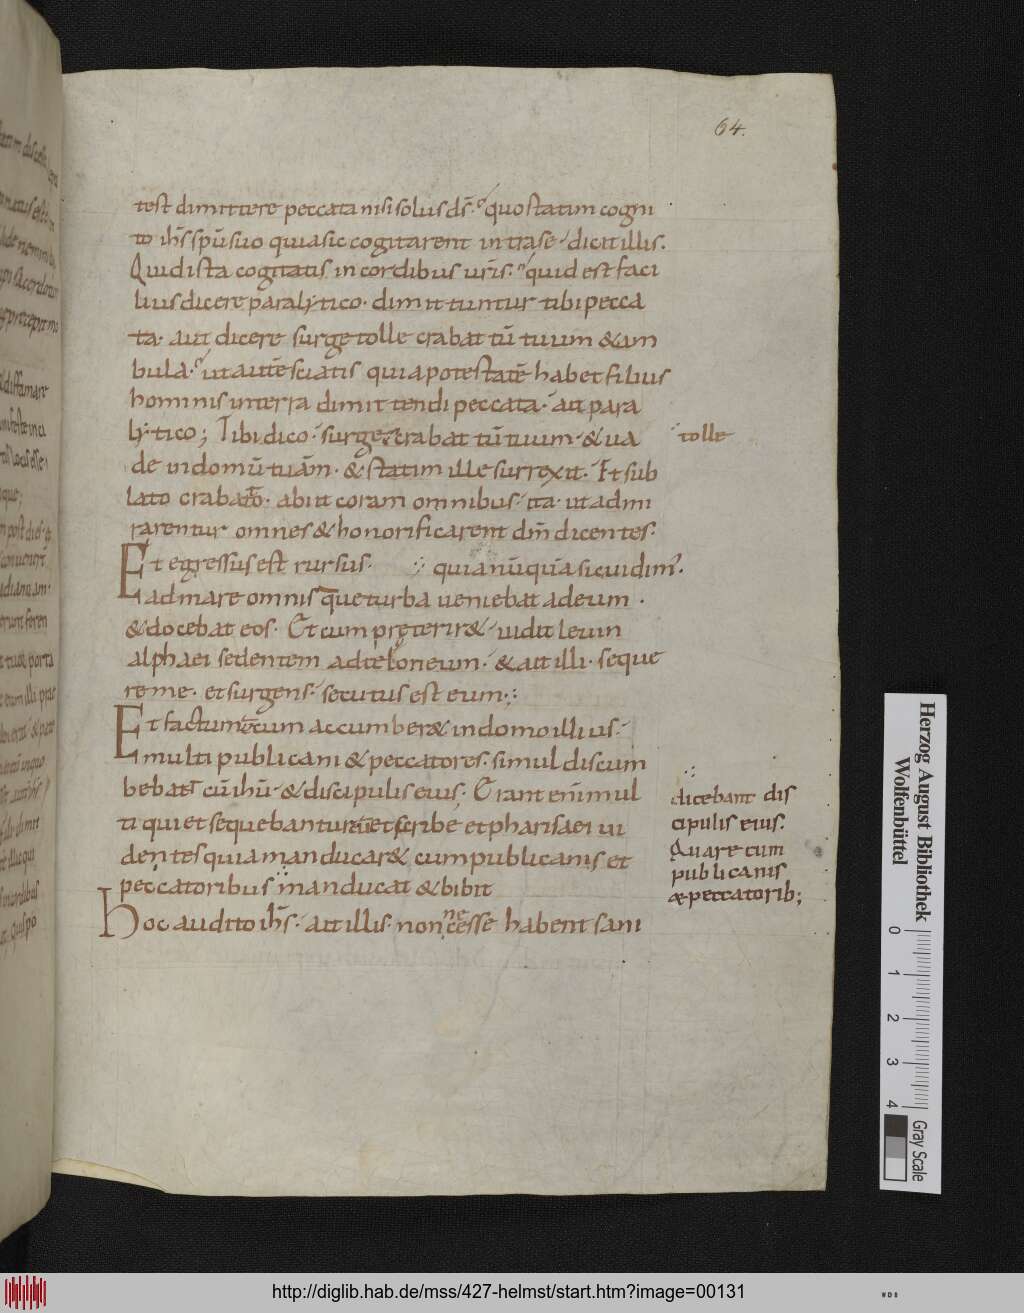 64.
test dimittere peccata nisi solus d̄s. quo statim cogni
to ih̄s sp̄u suo quia sic cogitarent intra se · dicit illis.
Quid ista cogitatis in cordibus ur̄is. quid est faci
lius dicere paralytico · dimittuntur tibi pecca
ta · aut dicere surge tolle crabattū tuum & am
bula · ut autē sciatis quia potestatē habet filius
hominis interra dimittendi peccata · ait para
lytico; Tibi dico · surge crabattū tuum · & ua
tolle
de in domū tuam · & statim ille surrexit · Et sub
lato crabato · abiit coram omnibus · ita · ut admi
rarentur omnes & honorificarent dm̄ dicentes ·
Et egressus est rursus · quia nūquā sic uidim'.
ad mare omnisque turba ueniebat ad eum ·
& docebat eos · Et cum pręterir& · uidit leuin
alphaei sedentem ad teloneum · & ait illi · seque
re me · et surgens · secutus est eum ·
Et factum ē cum accumber& in domo illius ·
multi publicani & peccatores · simul discum
bebant cū ihū · & discipulis eius · Erant enī mul
ti qui et sequebantur eū et scribe et pharisaei ui
dentes quia manducar& cum publicanis et
peccatoribus manducat & bibit
dicebant dis
cipulis eius.
Quare cum
publicanis
& peccatorib;
Hoc audito ih̄s · ait illis · non necesse habent sani
Herzog August Bibliothek
Wolfenbüttel
0 1 2 3 4
Gray Scale
http://diglib.hab.de/mss/427-helmst/start.htm?image=00131